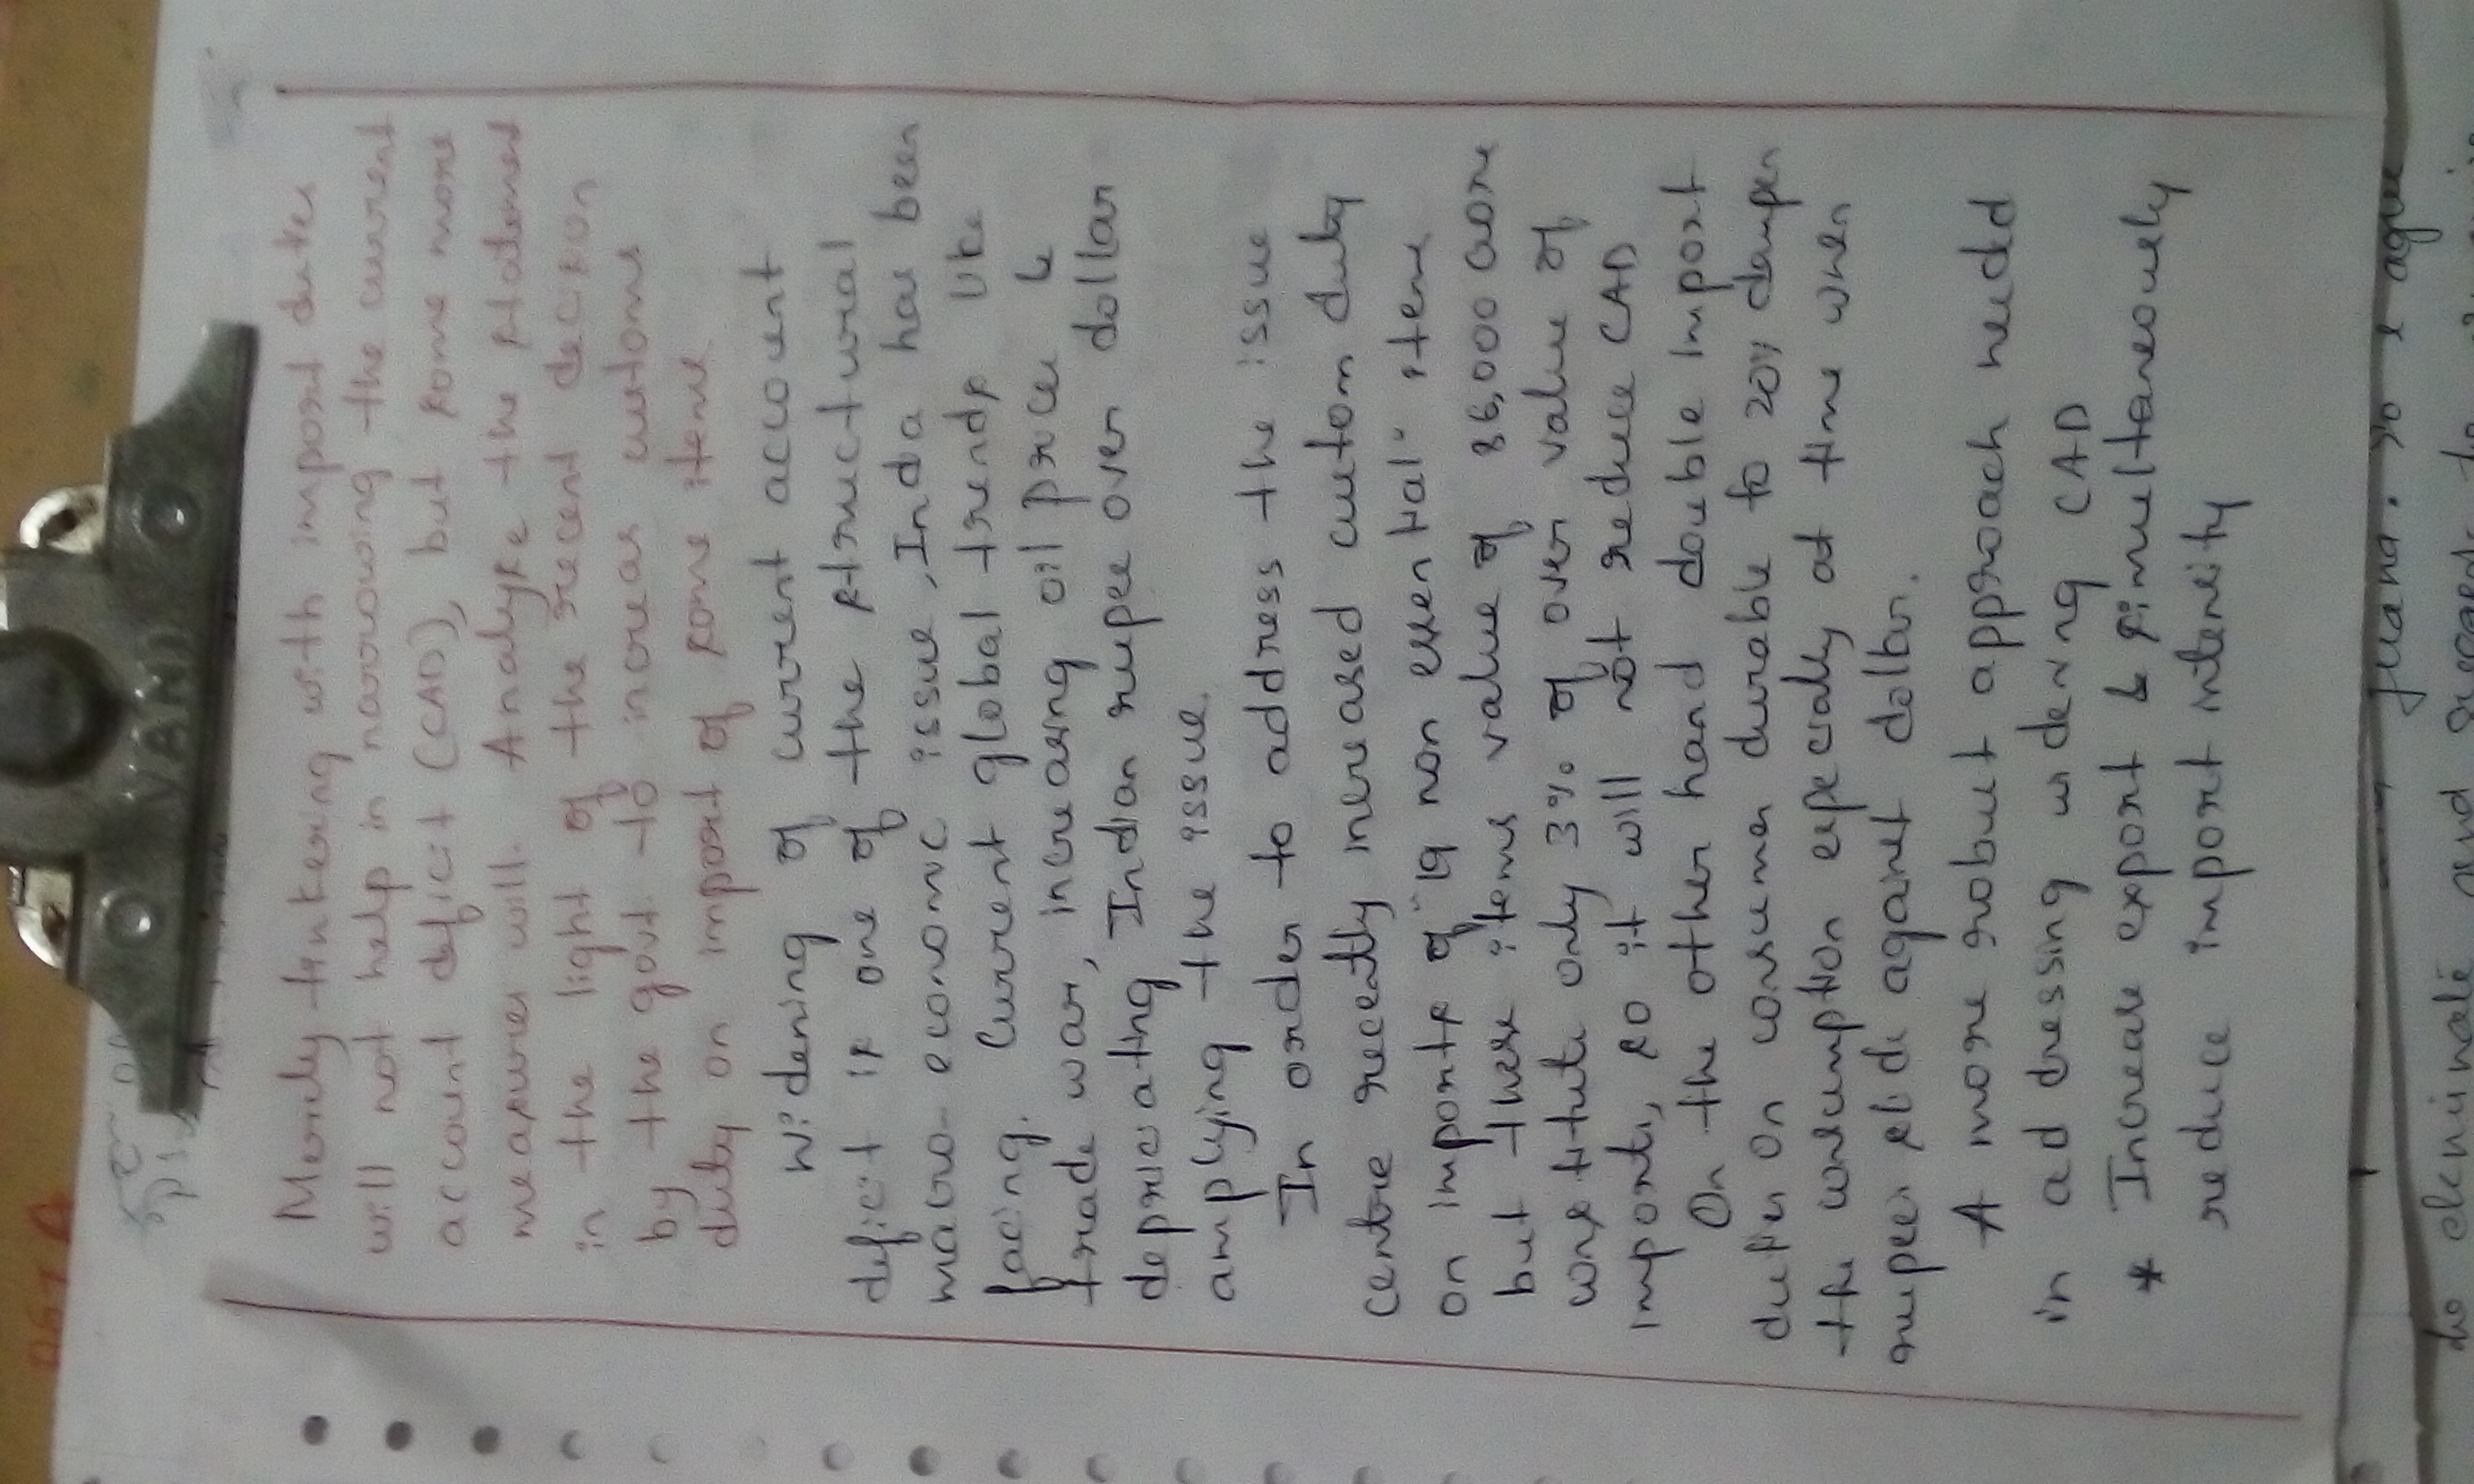 Merely tinkering with import duties
will not help in narrowing the current
account deficit (CAD), but some more
measures will. Analyse the statement
in the light of the recent decision
by the govt to increas customs
duty on import of some items
Widening of current account
deficit is one of the structural
macro-economic issue, India has been
facing. Current global trends like
trade war, increasing oil prices &
depriciating Indian rupee over dollar
amplying the issue.
In order to address the issue
centre recently increased custom duty
on imports of "19 non essential" items
but these items value of 86,000 crore
constitute only 3% of over value of
imports, so it will not reduce CAD
On the other hand double import
duties on consumer durable to 20% dampen
the consumption especially at time when
rupees slide against dollar.
A more robust approach needed
in addressing widening CAD
* Increase export & simultaneously
reduce import intensity
VANI
so I agree
to eleminate and suggests to